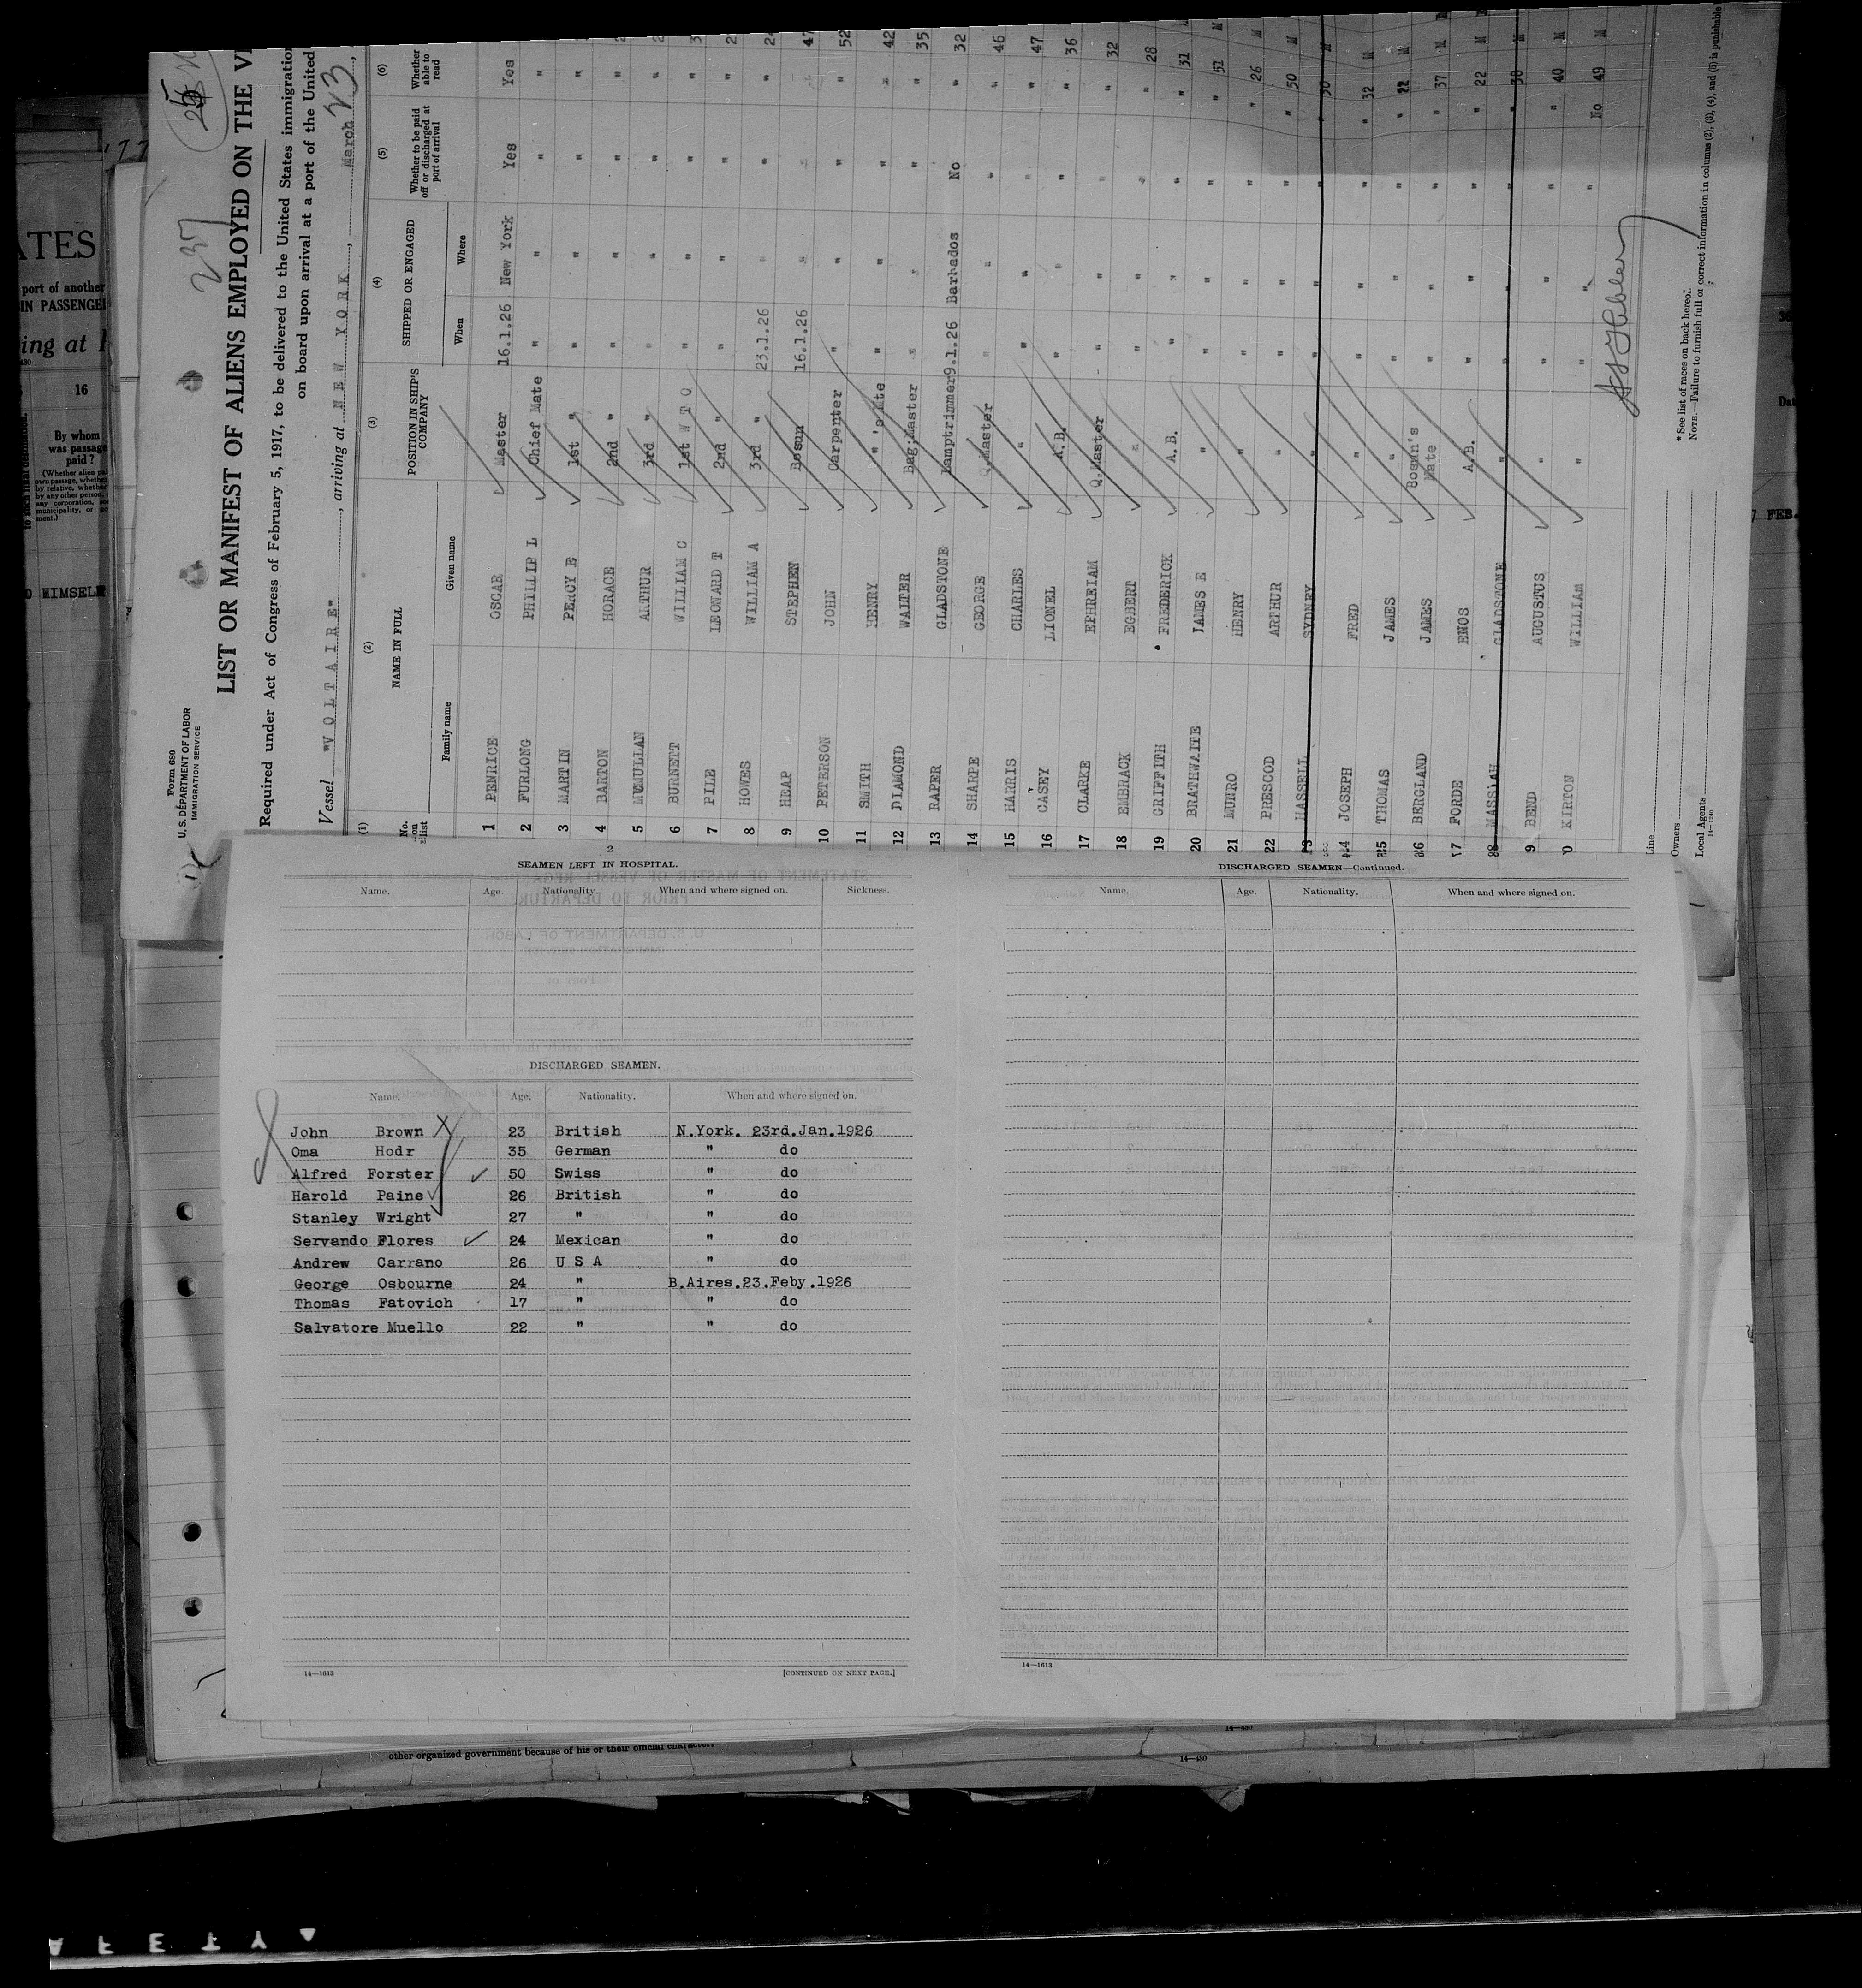 Form 680
U. S. DEPARTMENT OF LABOR
IMMIGRATION SERVICE
LIST OR MANIFEST OF ALIENS EMPLOYED ON THE
Required under Act of Congress of February 5, 1917, to be delivered to the United States immigration
on board upon arrival at a port of the United
Vessel "VOLTAIRE", arriving at NEW YORK, March 23,
(1) (2) (3) (4) (5) (6)
No. on list NAME IN FULL POSITION IN SHIP'S COMPANY SHIPPED OR ENGAGED Whether to be paid off or discharged at port of arrival Whether able to read
Family name Given name When Where
1 PENRICE OSCAR Master 16.1.26 New York Yes Yes
2 FURLONG PHILLIP L Chief Mate " " " "
3 MARTIN PERCY E 1st " " " " "
4 BARTON HORACE 2nd " " " " "
5 MCMULLAN ARTHUR 3rd " " " " "
6 BURNETT WILLIAM C 1st W T O " " " "
7 PILE LEONARD T 2nd " " " " "
8 HOWES WILLIAM A 3rd " 23.1.26 " " "
9 HEAP STEPHEN Bosun 16.1.26 " " 47
10 PETERSON JOHN Carpenter " " " " 52
11 SMITH HENRY " 's Mte " " " " 42
12 DIAMOND WALTER Bag.Master " " " " 35
13 RAPER GLADSTONE Lamptrimmer 9.1.26 Barbados No " 32
14 SHARPE GEORGE Q.Master " " " " 46
15 HARRIS CHARLES " " " " " 47
16 CASEY LIONEL A.B. " " " " 36
17 CLARKE EPHREIAM Q.Master " " " " 32
18 EMBRACK EGBERT " " " " " 28
19 GRIFFITH FREDERICK A.B. " " " " 31
20 BRATHWAITE JAMES E " " " " " 51 M
21 MUNRO HENRY " " " " " 26 M
22 PRESCOD ARTHUR " " " " " 50 M
23 HASSELL SYDNEY " " " " " 30 M
24 JOSEPH FRED " " " " " 32 M
25 THOMAS JAMES " " " " " 22 M
26 BERGLAND JAMES Bosun's Mate " " " " 37 M
27 FORDE ENOS A.B. " " " " 22 M
28 MASSIAH GLADSTONE " " " " " 38 M
9 BEND AUGUSTUS " " " " " 40 M
0 KIRTON WILLIAM " " " " No 49 M
Line
Owners
Local Agents
14—1240
* See list of races on back hereof.
NOTE.—Failure to furnish full or correct information in columns (2), (3), (4), and (5) is punishable
ATES
port of another
IN PASSENGER
ing at
16
By whom
was passage
paid?
HIMSELF
FEB.
2
SEAMEN LEFT IN HOSPITAL.
Name. Age. Nationality. When and where signed on. Sickness.
DISCHARGED SEAMEN.
Name. Age. Nationality. When and where signed on.
John Brown X 23 British N.York. 23rd.Jan.1926
Oma Hodr 35 German " do
Alfred Forster 50 Swiss " do
Harold Paine 26 British " do
Stanley Wright 27 " " do
Servando Flores 24 Mexican " do
Andrew Carrano 26 U S A " do
George Osbourne 24 " B.Aires.23.Feby.1926
Thomas Fatovich 17 " " do
Salvatore Muello 22 " " do
14—1613 [CONTINUED ON NEXT PAGE.]
DISCHARGED SEAMEN—Continued.
Name. Age. Nationality. When and where signed on.
14—1613
other organized government because of his or their official character.
14—430
14—430
AFETY